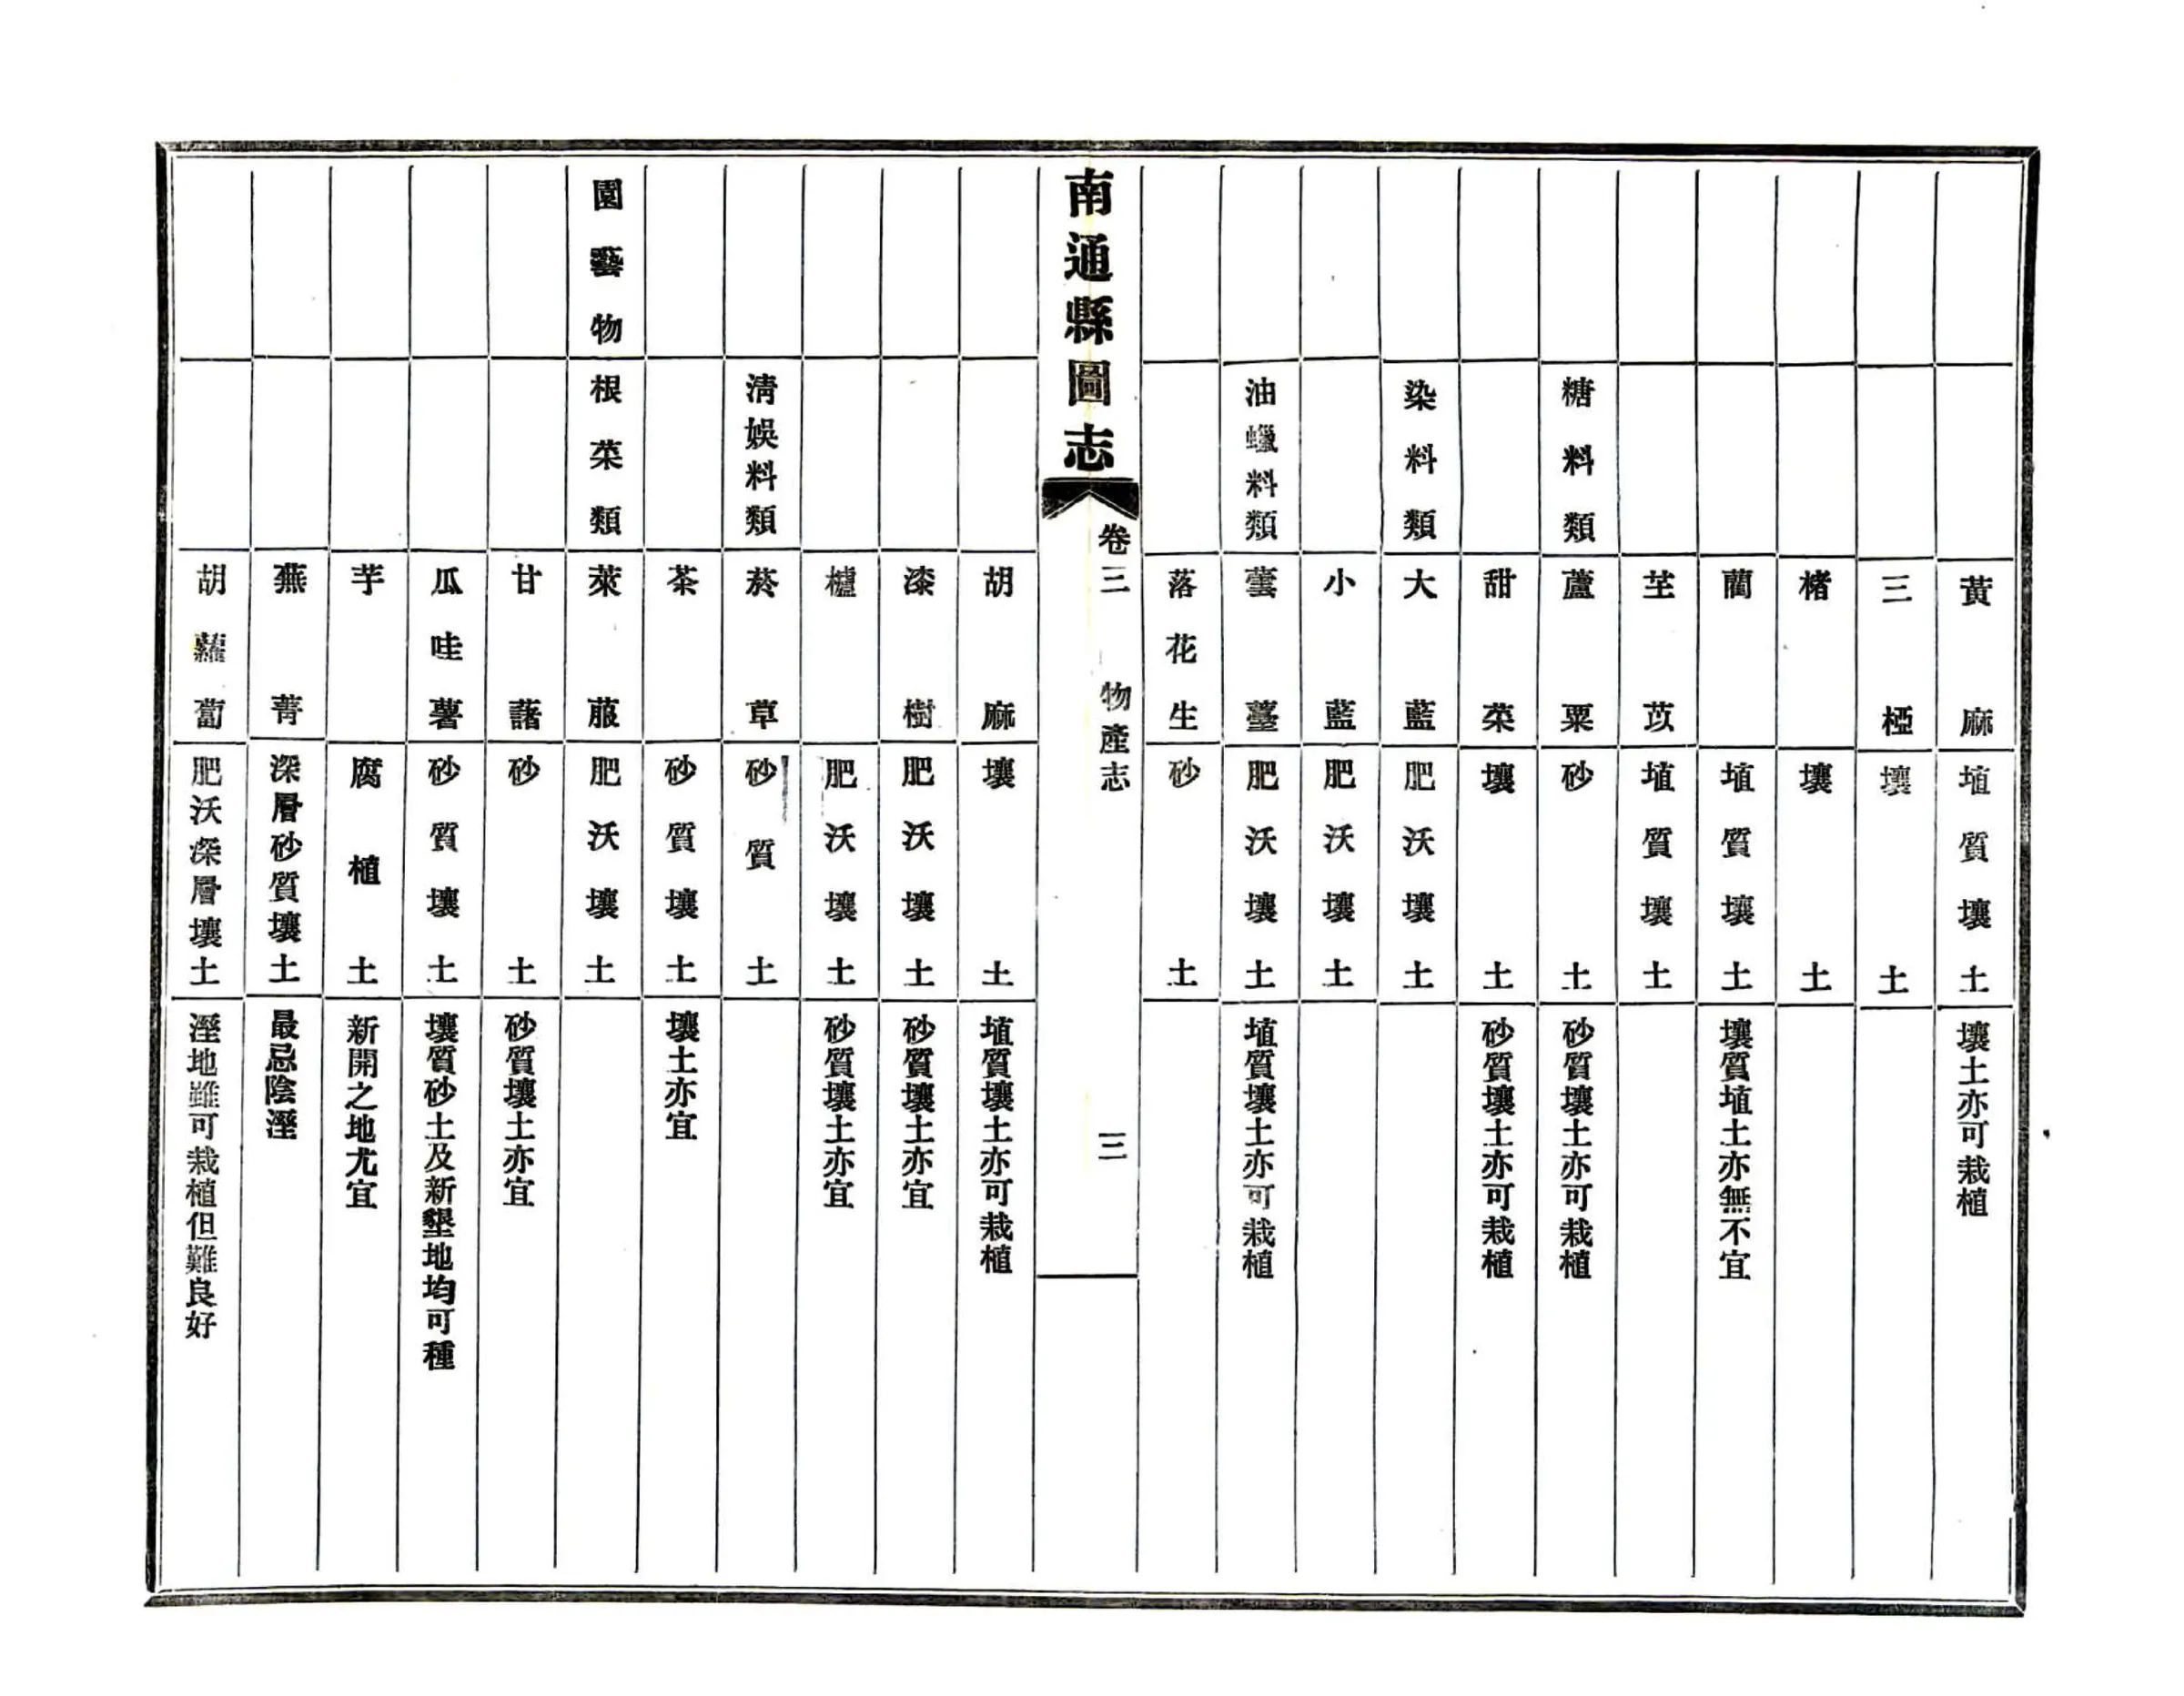 黃麻 埴質壤土 壤土亦可栽植
三椏 壤土
楮 壤土
藺 埴質壤土 壤質埴土亦無不宜
芏苡 埴質壤土
糖料類 蘆粟 砂土 砂質壤土亦可栽植
甜菜 壤土 砂質壤土亦可栽植
染料類 大藍 肥沃壤土
小藍 肥沃壤土
油蠟料類 蕓薹 肥沃壤土 埴質壤土亦可栽植
落花生 砂土
南通縣圖志 卷三 物產志 三
胡麻 壤土 埴質壤土亦可栽植
漆樹 肥沃壤土 砂質壤土亦宜
櫨 肥沃壤土 砂質壤土亦宜
淸娛料類 菸草 砂質土
茶 砂質壤土 壤土亦宜
園藝物 根菜類 萊菔 肥沃壤土
甘藷 砂土 砂質壤土亦宜
瓜哇薯 砂質壤土 壤質砂土及新墾地均可種
芋 腐植土 新開之地尤宜
蕪菁 深層砂質壤土 最忌陰溼
胡蘿蔔 肥沃深層壤土 溼地雖可栽植但難良好